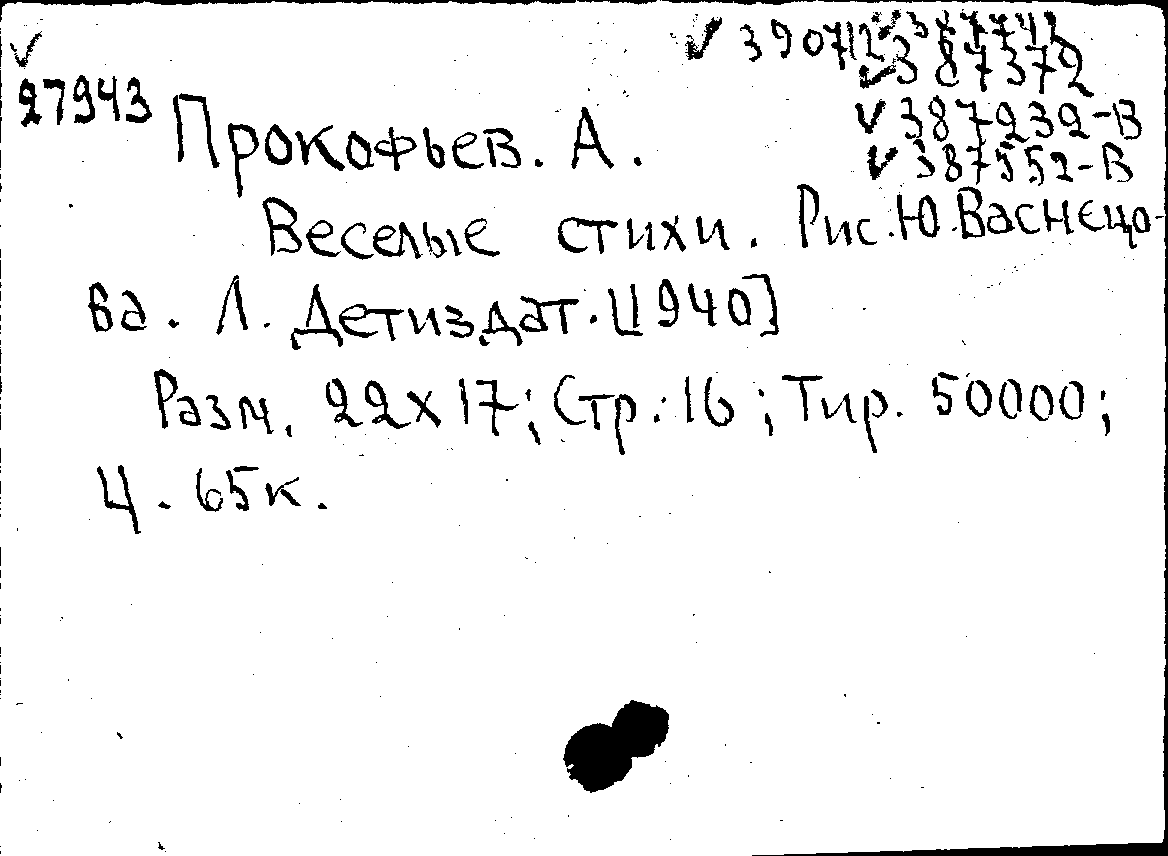 ✓ ✓ 390712 ✓
✓ 387372
27943 ✓ 387232-В
Прокофьев. А. ✓ 387552-В
Веселые стихи. Рис. Ю. Васнецо-
ва. Л. Детиздат. [1940]
Разм. 22х17; Стр. 16; Тир. 50000;
Ц. 65к.